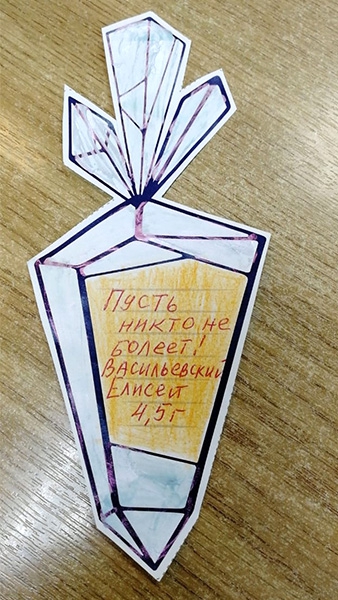 Пусть
никто не
болеет!
Васильевский
Елисей
4,5 г